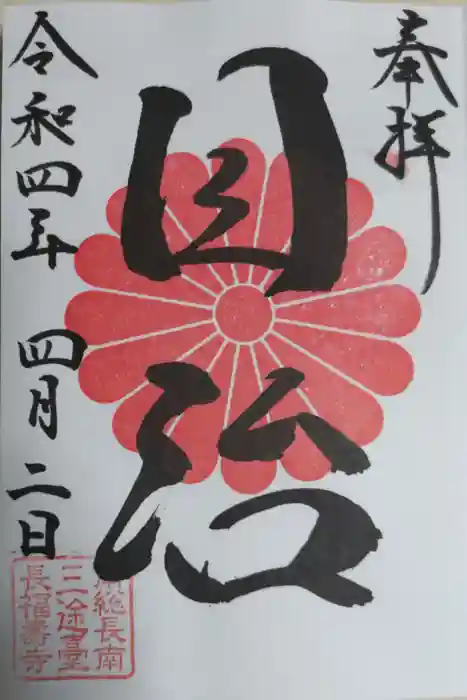 奉拝
同治
令和四年 四月二日
房総長南
三途臺
長福壽寺